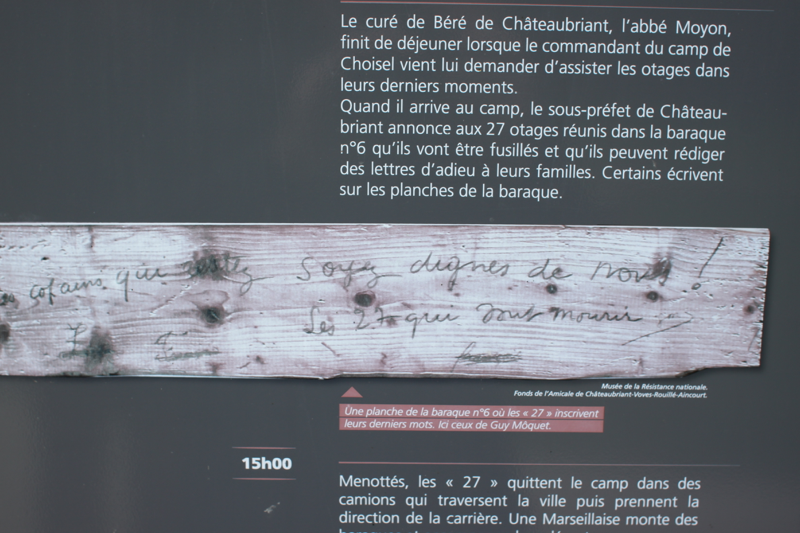 Le curé de Béré de Châteaubriant, l'abbé Moyon,
finit de déjeuner lorsque le commandant du camp de
Choisel vient lui demander d'assister les otages dans
leurs derniers moments.
Quand il arrive au camp, le sous-préfet de Château-
briant annonce aux 27 otages réunis dans la baraque
n°6 qu'ils vont être fusillés et qu'ils peuvent rédiger
des lettres d'adieu à leurs familles. Certains écrivent
sur les planches de la baraque.
copains qui restez soyez dignes de nous !
Les 27 qui vont mourir
Musée de la Résistance nationale.
Fonds de l'Amicale de Châteaubriant-Voves-Rouillé-Aincourt.
Une planche de la baraque n°6 où les « 27 » inscrivent
leurs derniers mots. Ici ceux de Guy Môquet.
15h00
Menottés, les « 27 » quittent le camp dans des
camions qui traversent la ville puis prennent la
direction de la carrière. Une Marseillaise monte des